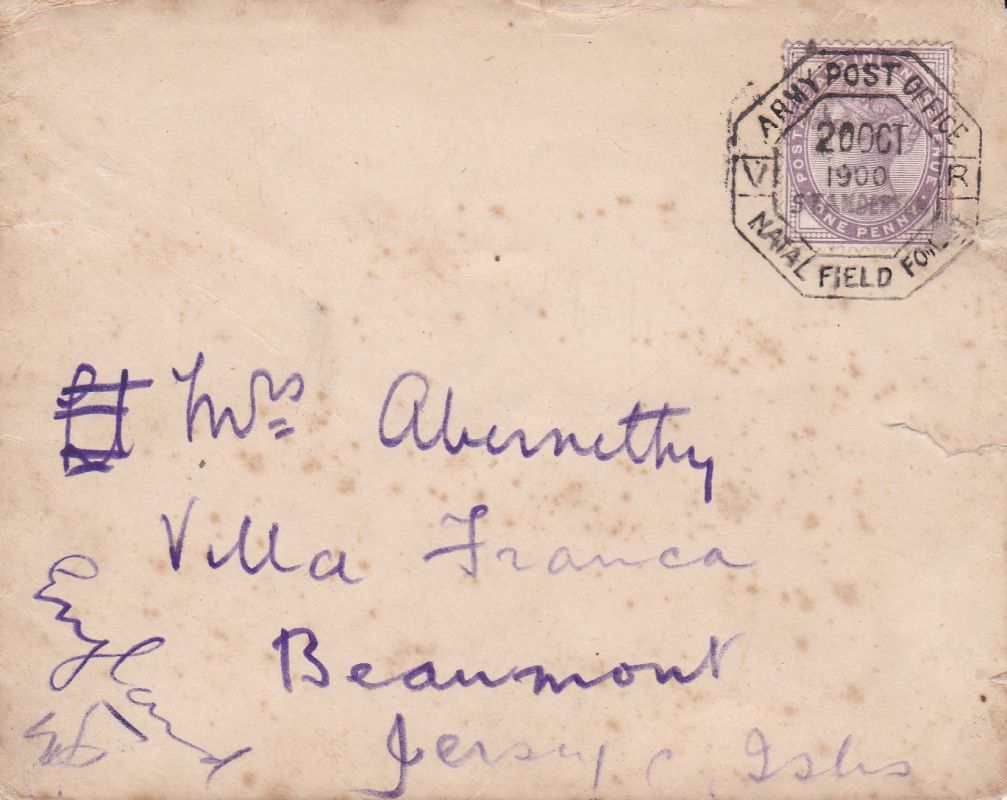 ARMY POST OFFICE
20 OCT
1900
V R
NATAL FIELD FORCE
POSTAGE AND INLAND REVENUE
ONE PENNY
Mrs Abernethy
Villa Franca
Beaumont
Jersey C. Isles
England